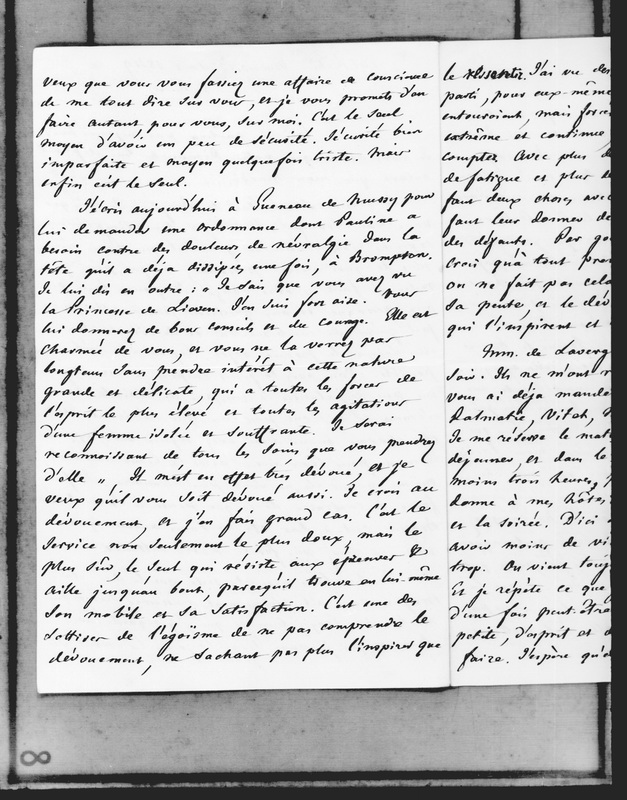 veux que vous vous fassiez une affaire de conscience
de me tout dire sur vous, et je vous promets d'en
faire autant, pour vous, sur moi. C'est le seul
moyen d'avoir un peu de sécurité. Sécurité bien
imparfaite et moyen quelquefois triste. Mais
enfin c'est le seul.
J'écris aujourd'hui à Gueneau de Mussy pour
lui demander une ordonnance dont Pauline a
besoin contre des douleurs de névralgie dans la
tête qu'il a déja dissipées une fois, à Brompton.
Je lui dis en outre : " Je sais que vous avez vu
la Princesse de Lieven. J'en suis fort aise. Vous
lui donnerez de bons conseils et du courage. Elle est
charmée de vous, et vous ne la verrez pas
longtems sans prendre intérêt à cette nature
grande et délicate, qui a toutes les forces de
l'esprit le plus élevé et toutes les agitations
d'une femme isolée et souffrante. Je serai
reconnoissant de tous les soins que vous prendrez
d'elle ". Il m'est en effet très dévoué, et je
veux qu'il vous soit dévoué aussi. Je crois au
dévouement, et j'en fais grand cas. C'est le
service non seulement le plus doux, mais le
plus sûr, le seul qui résiste aux épreuves &
aille jusqu'au bout, parcequ'il trouve en lui-même
son mobile et sa satisfaction. C'est une des
sottises de l'égoïsme de ne pas comprendre le
dévouement, ne sachant pas plus l'inspirer que
le ressentir. J'ai vu des
parti, pour eux-même
entouroient, mais
extrême et continue
comptez avec plus
de fatigue et plus
faut deux choses avec
faut leur donner de
des dégouts. Par
crois qu'à tout
on ne fait pas cela
sa pente, et le
qui l'inspirent et
Mm. de Laverg
soir. Ils ne m'ont
vous ai déja mandé
Dalmatie, Vitet,
Je me réserve le mat
déjeuner, et dans le
moins trois heures,
donne à mes hôtes
et la soirée. D'ici
avoir moins de
trop. On vient touj
Et je répète ce que
d'une fois peut-être
petite, d'esprit et
faire. J'espère qu'